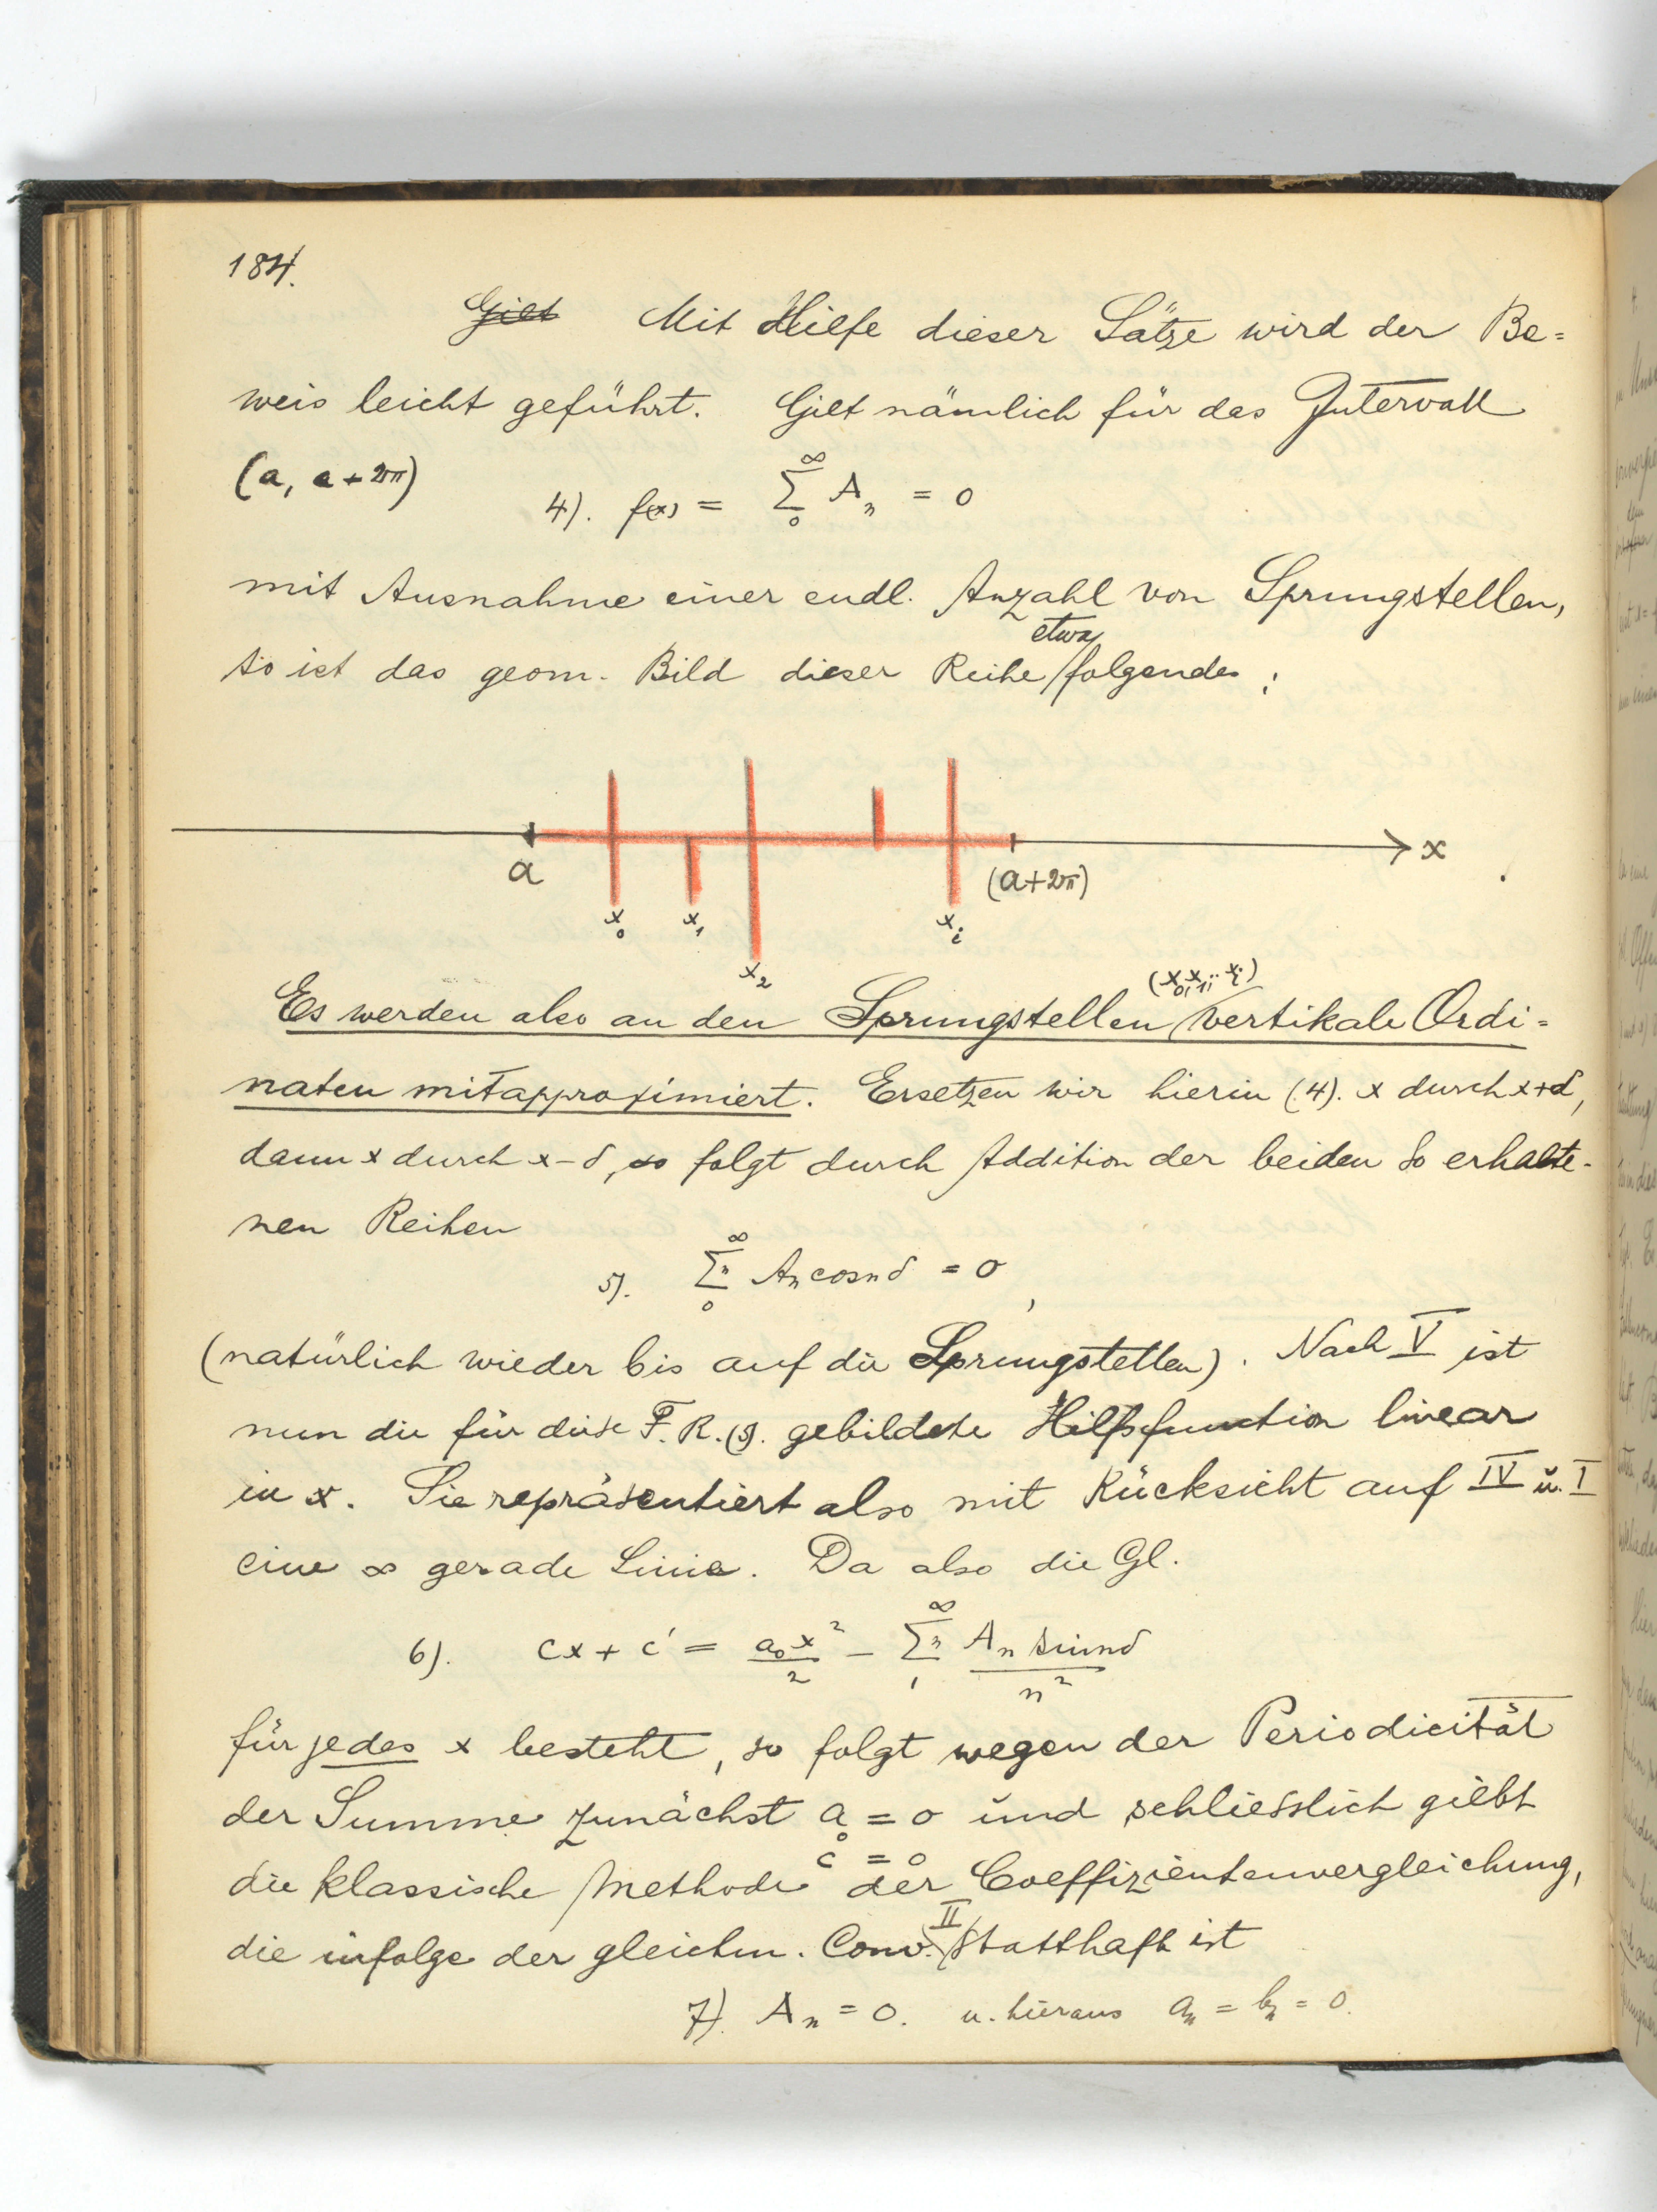 184.
Gilt Mit Hilfe dieser Sätze wird der Be=
weis leicht geführt. Gilt nämlich für das Intervall
(a, a+2π)
4). f(x) = ∑₀^∞ Aₙ = 0
mit Ausnahme einer endl. Anzahl von Sprungstellen,
etwa
so ist das geom. Bild dieser Reihe folgendes:
x
a
(a+2π)
x₀ x₁ xᵢ
x₂
(x₀, x₁, ·· xᵢ)
Es werden also an den Sprungstellen vertikale Ordi=
naten mitapproximiert. Ersetzen wir hierin (4). x durch x+δ,
dann x durch x-δ, so folgt durch Addition der beiden so erhalte-
nen Reihen
5). ∑ₙ₀^∞ Aₙ cos nδ = 0,
(natürlich wieder bis auf die Sprungstellen). Nach V ist
nun die für diese F. R. (5). gebildete Hilfsfunction linear
in x. Sie repräsentiert also mit Rücksicht auf IV u. I
eine ∞ gerade Linie. Da also die Gl.
6). cx + c' = a₀x²/2 - ∑ₙ₁^∞ Aₙ sin nδ / n²
für jedes x besteht, so folgt wegen der Periodicität
der Summe zunächst a₀ = 0 und schliesslich giebt
c = 0
die klassische Methode der Coeffizientenvergleichung,
II
die infolge der gleichm. Conv. statthaft ist
7). Aₙ = 0. u. hieraus aₙ = bₙ = 0.